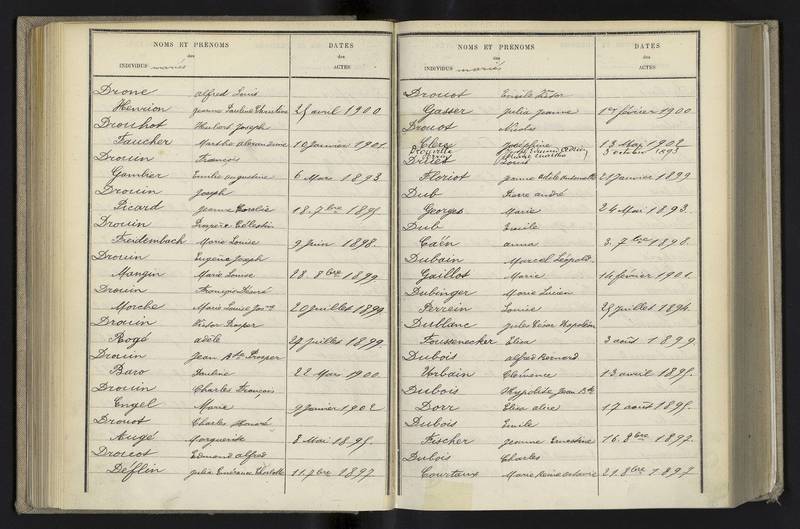 NOMS ET PRÉNOMS DATES
des des
INDIVIDUS mariés ACTES
Drone Alfred Louis
Henrion Jeanne Pauline Christine 25 avril 1900
Drouhot Hubert Joseph
Faucher Marthe Alexandrine 10 Janvier 1901.
Drouin François
Gambier Emilie Augustine 6 Mars 1893.
Drouin Joseph
Picard Jeanne 18. 7bre 1895.
Drouin Célestin
Freidembach Marie Louise 9 Juin 1898.
Drouin Eugène Joseph
Mangin Marie Louise 28. 8bre 1899.
Drouin François
Morche Marie Louise 20 juillet 1899.
Drouin Victor Prosper
Rogé adèle 24 juillet 1899.
Drouin Jean Bte Prosper
Baro Pauline 22 Mars 1900.
Drouin Charles François
Engel Marie 9 Janvier 1902
Drouot Charles Honoré
Augé Marguerite 8 Mai 1895.
Drouot Edmond Alfred
Déflin Julie 11. 7bre 1897
NOMS ET PRÉNOMS DATES
des des
INDIVIDUS mariés ACTES
Drouot Emile Victor
Gasser Julia Jeanne 1er février 1900
Drouot Nicolas
Clerc Joséphine 13 Mai 1902
3 octobre 1893
Louis
Floriot Jeanne Adèle Antoinette 21 Janvier 1899.
Dub Pierre andré
Georges Marie 24 Mai 1893.
Dub Emile
Caën anna 3. 7bre 1898.
Dubain Marcel Léopold
Gaillot Marie 14 février 1901.
Dubinger Marie Lucien
Perrein Louise 25 juillet 1894.
Dublanc Jules César Napoléon
Foussenecker Elisa 3 août 1899.
Dubois Alfred Bernard
Urbain Clémence 13 avril 1895.
Dubois Hypolite Jean Bte
Dorr Elisa 17 août 1895.
Dubois Emile
Fischer Jeanne Ernestine 16. 8bre 1897.
Dubois Charles
Courtaux Marie 21. 8bre 1897